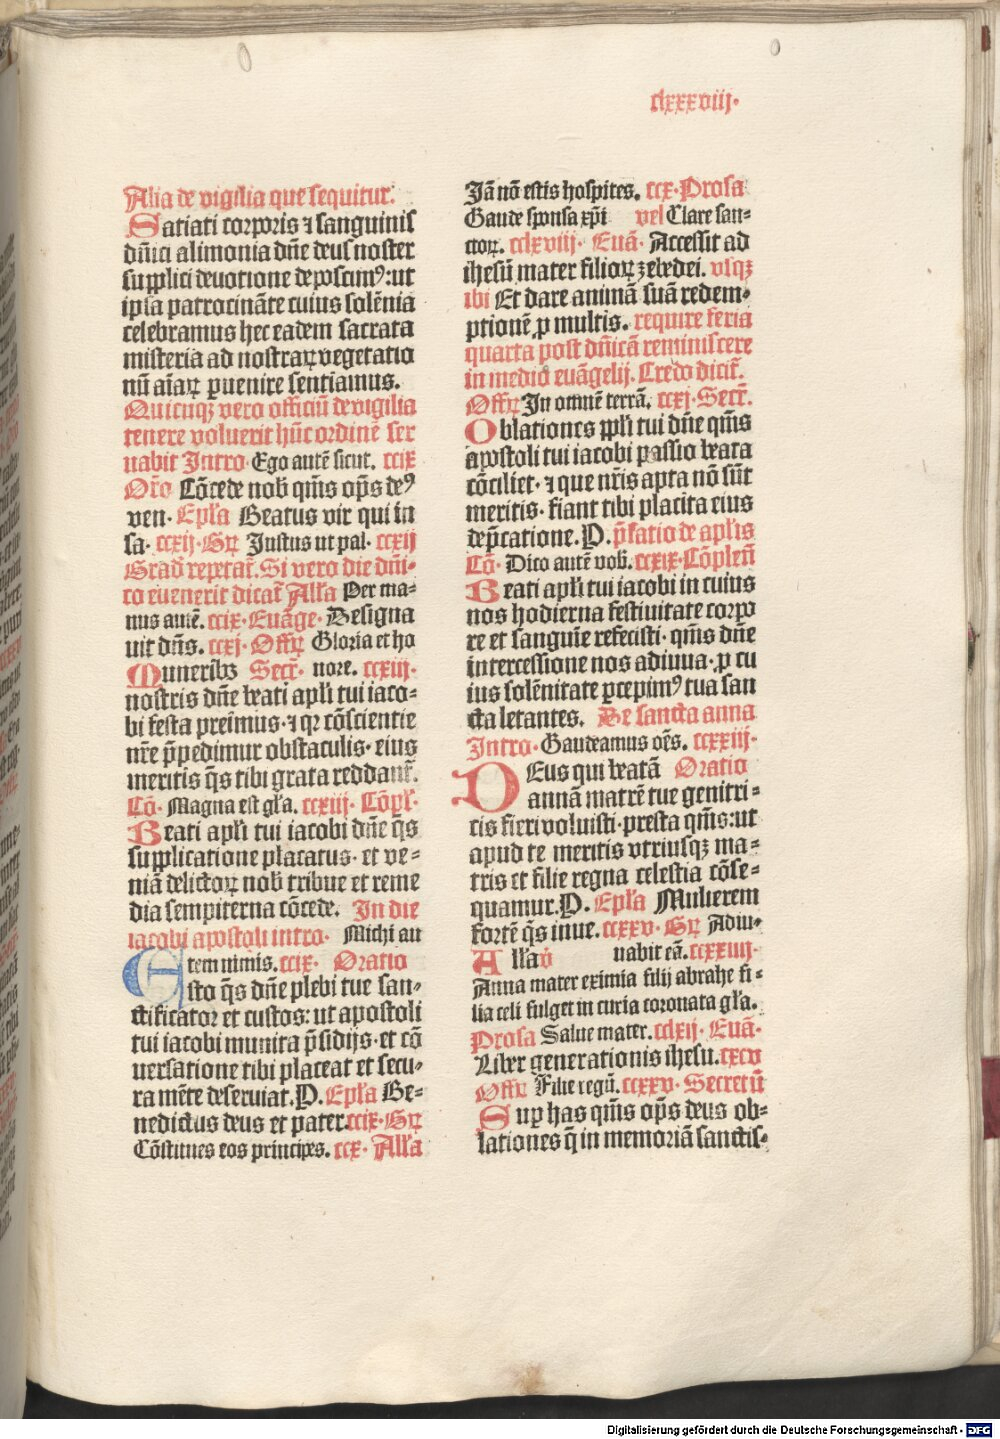 clxxxviij·
Alia de vigilia que sequitur.
Satiati corporis ⁊ sanguinis
dn̄ici alimonia dn̄e deus noster
supplici deuotione deposcimꝰ: ut
ipsa patrocināte cuius solēnia
celebramus hec eadem sacrata
misteria ad nostraꝝ vegetatio
nū aīaꝝ ꝑuenire sentiamus.
Quicunqꝫ vero officiū de vigilia
tenere voluerit hūc ordinē ser
uabit Intro· Ego autē sicut. ccix
Orō Cōcede nob̄ qm̄s op̄s deꝰ
ven· Ep̄la Beatus vir qui in
sa· ccxij· Gꝝ Justus ut pal· ccxij
Grad̄ repetat̄. Si vero die dn̄i-
co euenerit dicat̄ All̄a Per ma-
nus autē. ccix· Euāge· Designa
uit dn̄s. ccxj· Offꝝ Gloria et ho
Muneribꝫ Secr̄· nore. ccxiij·
nostris dn̄e beati apl̄i tui iaco-
bi festa preimus· ⁊ qꝛ cōscientie
nr̄e p̄pedimur obstaculis· eius
meritis q̄s tibi grata reddant̄.
Cō· Magna est gl̄a. ccxiij· Cōpl̄·
Beati apl̄i tui iacobi dn̄e q̄s
supplicatione placatus· et ve-
niā delictoꝝ nob̄ tribue et reme
dia sempiterna cōcede. In die
iacobi apostoli intro· Michi au
tem nimis. ccix· Oratio
Esto q̄s dn̄e plebi tue san-
ctificator et custos: ut apostoli
tui iacobi munita p̄sidijs· et cō
uersatione tibi placeat et secu-
ra mēte deseruiat. P. Ep̄la Be-
nedictus deus et pater. ccix· Gꝝ
Cōstitues eos principes. ccx· All̄a
Jā nō estis hospites. ccx· Prosa
Gaude sponsa xp̄i vel Clare san-
ctoꝝ. cclxviij· Euā· Accessit ad
ihesū mater filioꝝ zebedei. vsqꝫ
ibi Et dare animā suā redem-
ptionē ꝓ multis. require feria
quarta post dn̄icā reminiscere
in medio euāgelij. Credo dicit̄.
Offꝝ In omnē terrā. ccxj· Secr̄.
Oblationes ppl̄i tui dn̄e qm̄s
apostoli tui iacobi passio beata
cōciliet· ⁊ que nr̄is apta nō sūt
meritis· fiant tibi placita eius
dep̄catione. P. p̄fatio de apl̄is
Cō· Dico autē vob̄. ccxix· Cōplen̄
Beati apl̄i tui iacobi in cuius
nos hodierna festiuitate corpo
re et sanguīe refecisti· qm̄s dn̄e
intercessione nos adiuua· ꝓ cu
ius solēnitate ꝑcepimꝰ tua san
cta letantes. De sancta anna
Intro· Gaudeamus oēs. ccxxiij·
DEus qui beatā Oratio
annā matrē tue genitri-
cis fieri voluisti· presta qm̄s: ut
apud te meritis vtriusqꝫ ma-
tris et filie regna celestia cōse-
quamur. P. Ep̄la Mulierem
fortē q̄s inue. ccxxv· Gꝝ Adiu-
All̄a v̄ uabit eā. ccxxiiij·
Anna mater eximia filij abrahe fi-
lia celi fulget in curia coronata gl̄a.
Prosa Salue mater. cclxij· Euā·
Liber generationis ihesu. cxcv
Offꝝ Filie regū. ccxxv· Secretū
Suꝑ has qm̄s op̄s deus ob-
lationes q̄ in memoriā sanctis-
Digitalisierung gefördert durch die Deutsche Forschungsgemeinschaft - DFG